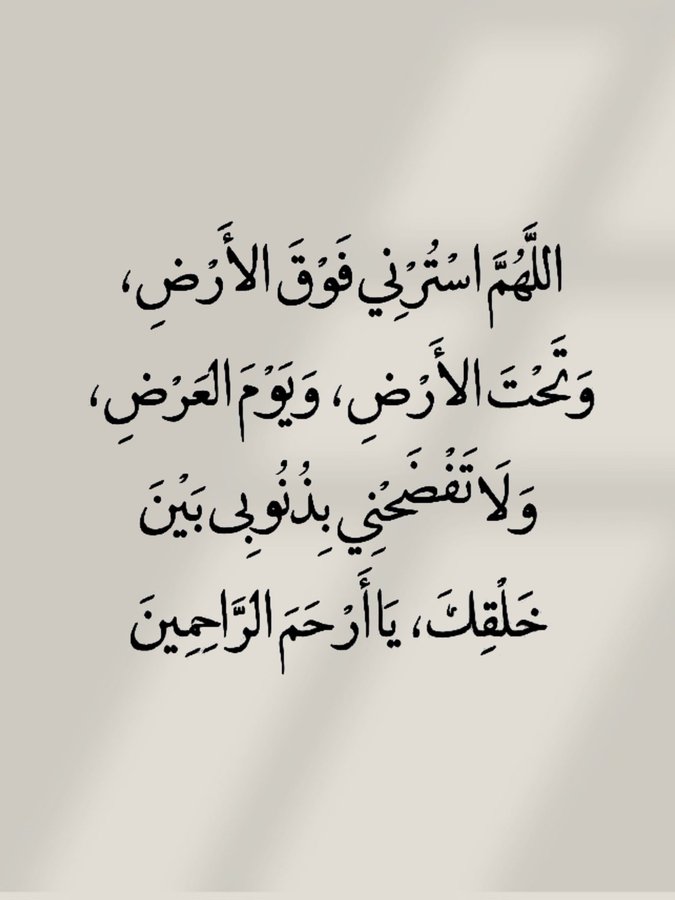 اللَّهُمَّ اسْتُرْنِي فَوْقَ الأَرْضِ،
وَتَحْتَ الأَرْضِ، وَيَوْمَ العَرْضِ،
وَلَا تَفْضَحْنِي بِذُنُوبِى بَيْنَ
خَلْقِكَ، يَا أَرْحَمَ الرَّاحِمِينَ